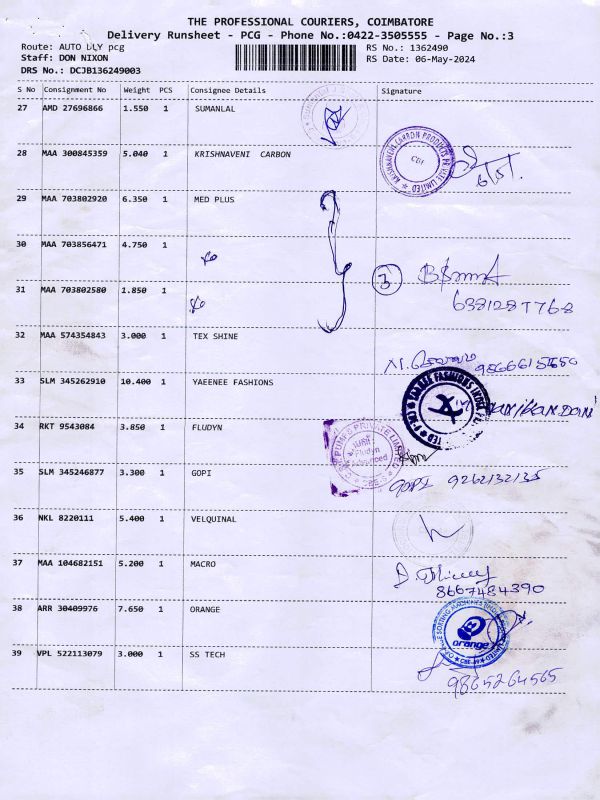 THE PROFESSIONAL COURIERS, COIMBATORE
Delivery Runsheet - PCG - Phone No.:0422-3505555 - Page No.:3
Route: AUTO DLY pcg RS No.: 1362490
Staff: DON NIXON RS Date: 06-May-2024
DRS No.: DCJB136249003
S No Consignment No Weight PCS Consignee Details Signature
27 AMD 27696866 1.550 1 SUMANLAL
28 MAA 300845359 5.040 1 KRISHNAVENI CARBON
KRISHNAVENI CARBON PRODUCTS PVT LIMITED
CBE
6/5/.
29 MAA 703802920 6.350 1 MED PLUS
30 MAA 703856471 4.750 1 do
3
6381287768
31 MAA 703802580 1.850 1 do
32 MAA 574354843 3.000 1 TEX SHINE
33 SLM 345262910 10.400 1 YAEENEE FASHIONS
34 RKT 9543084 3.850 1 FLUDYN
PUMPS PRIVATE LIMITED
Fludyn
Advanced
35 SLM 345246877 3.300 1 GOPI
GOPI 9262132135
36 NKL 8220111 5.400 1 VELQUINAL
37 MAA 104682151 5.200 1 MACRO
8667484390
38 ARR 30409976 7.650 1 ORANGE
orange
39 VPL 522113079 3.000 1 SS TECH
9865264565